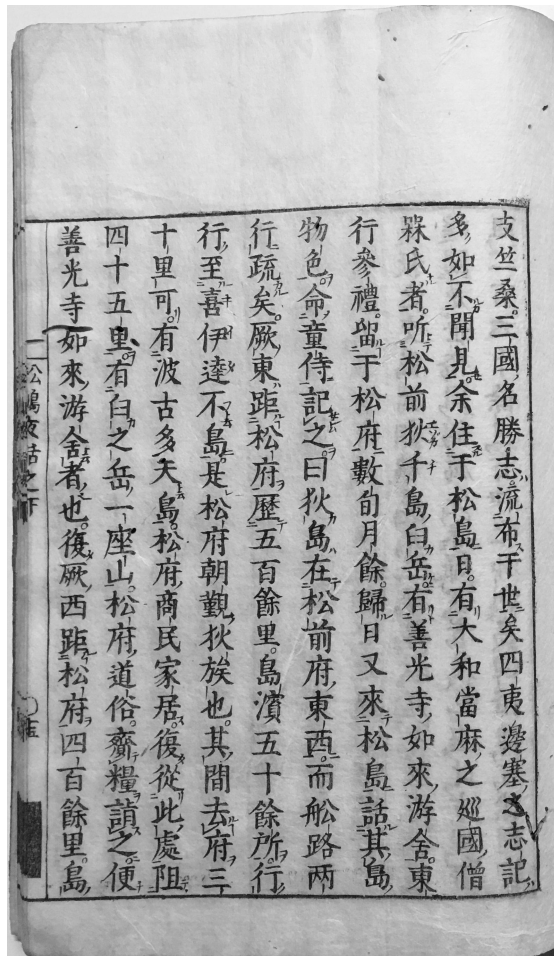 支竺桑三國名勝志流布于世矣四夷邊塞之志記
多如不聞見余住于松島日有大和當麻之巡國僧
槑氏者听松前狄千島臼岳有善光寺如來游舍東
行參禮留于松府數旬月餘歸日又來松島話其島
物色命童侍記之曰狄島在松前府東西而舩路両
行疏矣厥東距松府歷五百餘里島濱五十餘所行
行至喜伊達不島是松府朝覲狄族也其間去府三
十里可有波古多天島松府商民家居復從此處阻
四十五里有臼之岳一座山松府道俗齎糧詣之便
善光寺如來游舍者也復厥西距松府四百餘里島
松島夜話之下